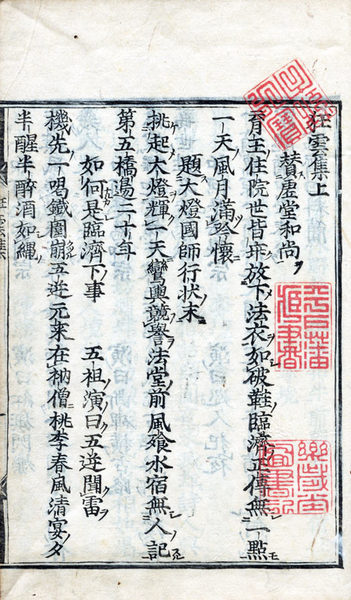 狂雲集上
賛虚堂和尚
育王住院世皆乖放下法衣如破鞋臨濟正傳無一點
一天風月滿吟懷
題大燈國師行状末
挑起大燈輝一天鸞輿競譽法堂前風飡水宿無人記
第五橋邊二十年
如何是臨濟下事 五祖演曰五逆聞雷
機先一喝鐵圍崩五逆元来在衲僧桃李春風清宴夕
半醒半醉酒如縄
子孫永寶
平戸藩藏書
樂歳堂圖書記